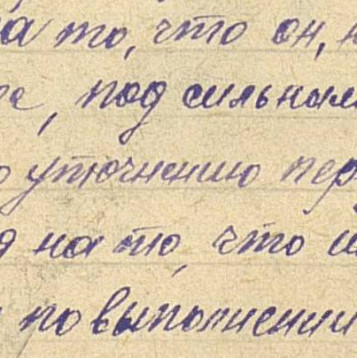 а то, что он,
, под сильным
уточнению пер
на то, что
по выполнении